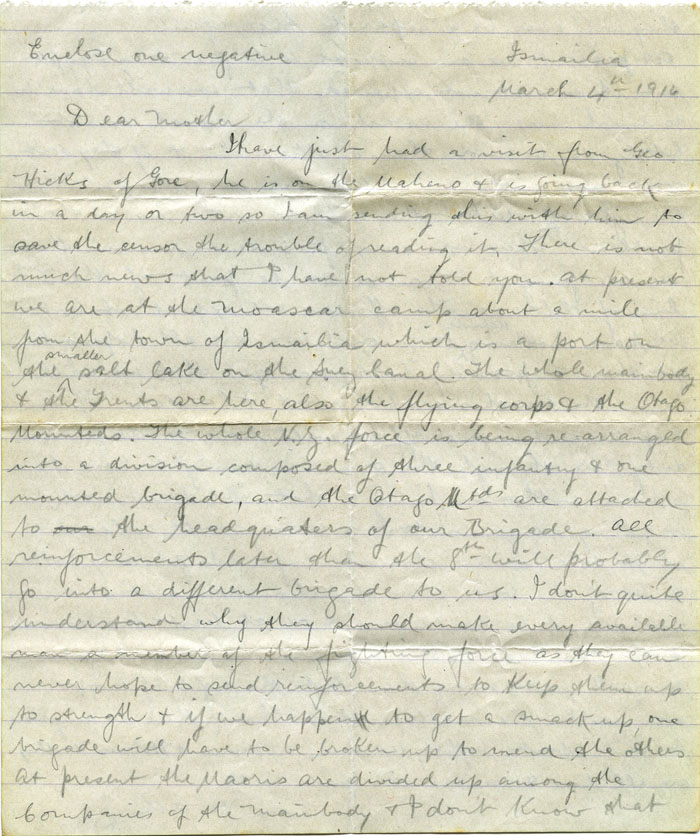 Enclose one negative Ismailia
March 4th 1916
Dear Mother
I have just had a visit from Geo.
Hicks of Gore, he is on the Maheno & is going back
in a day or two so I am sending this with him to
save the censor the trouble of reading it. There is not
much news that I have not told you. At present
we are at the Moascar camp about a mile
from the town of Ismailia which is a port on
the smaller salt lake on the Suez Canal. The whole mainbody
& the Trents are here, also the flying corps & the Otago
Mounteds. The whole N.Z. force is being re-arranged
into a division composed of three infantry & one
mounted brigade, and the Otago Mtds are attached
to our the headquaters of our Brigade. All
reinforcements later than the 8th will probably
go into a different brigade to us. I don't quite
understand why they should make every available
man a member of the fighting force as they can
never hope to send reinforcements to keep them up
to strength & if we happen to get a smack up, one
brigade will have to be broken up to mend the others
At present the Maoris are divided up among the
Companies of the mainbody & I don't know that